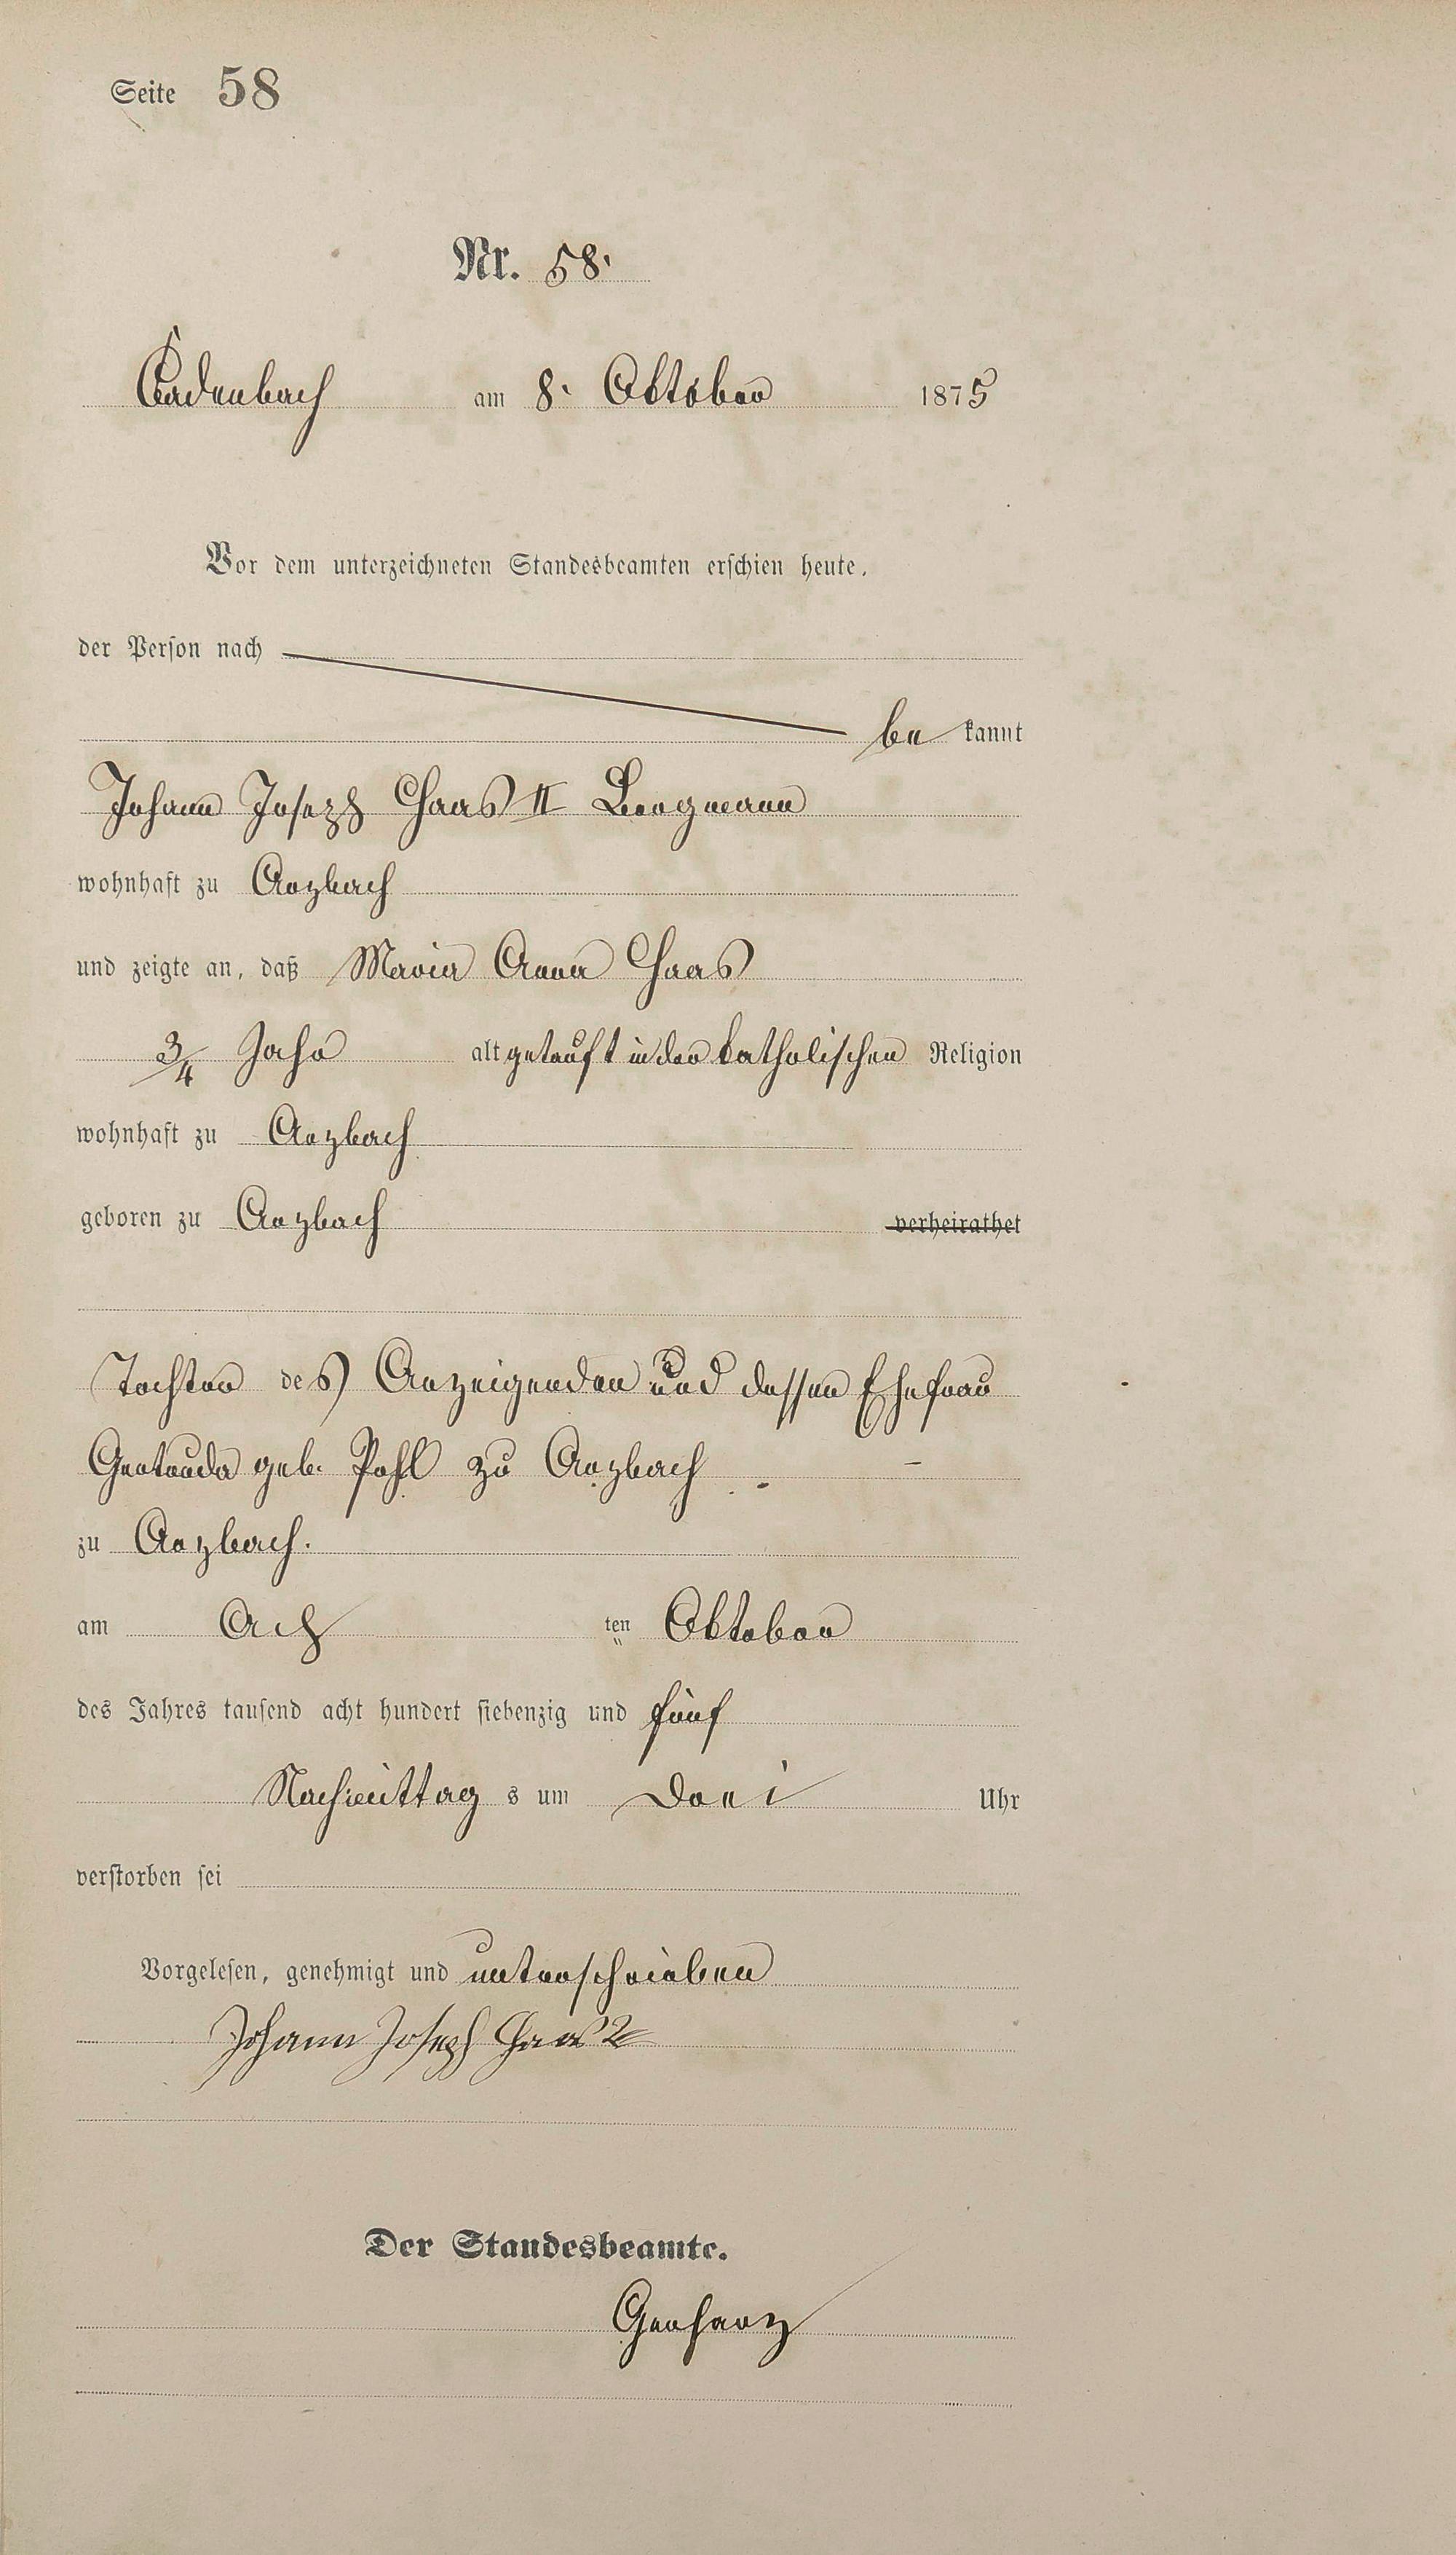 Seite 58
Nr. 58.
Cadenbach am 8. Oktober 1875
Vor dem unterzeichneten Standesbeamten erschien heute,
der Person nach
be kannt
Johann Joseph Haas II Bergmann
wohnhaft zu Arzbach
und zeigte an, daß Maria Anna Haas
3/4 Jahr alt getauft in der katholischen Religion
wohnhaft zu Arzbach
geboren zu Arzbach verheirathet
Tochter des Anzeigenden und dessen Ehefrau
Gertruda geb. Pohl zu Arzbach
zu Arzbach.
am Ach ten Oktober
des Jahres tausend acht hundert siebenzig und fünf
Nachmittag s um Drei Uhr
verstorben sei
Vorgelesen, genehmigt und unterschrieben
Johann Joseph Haas 2
Der Standesbeamte.
Gerharz